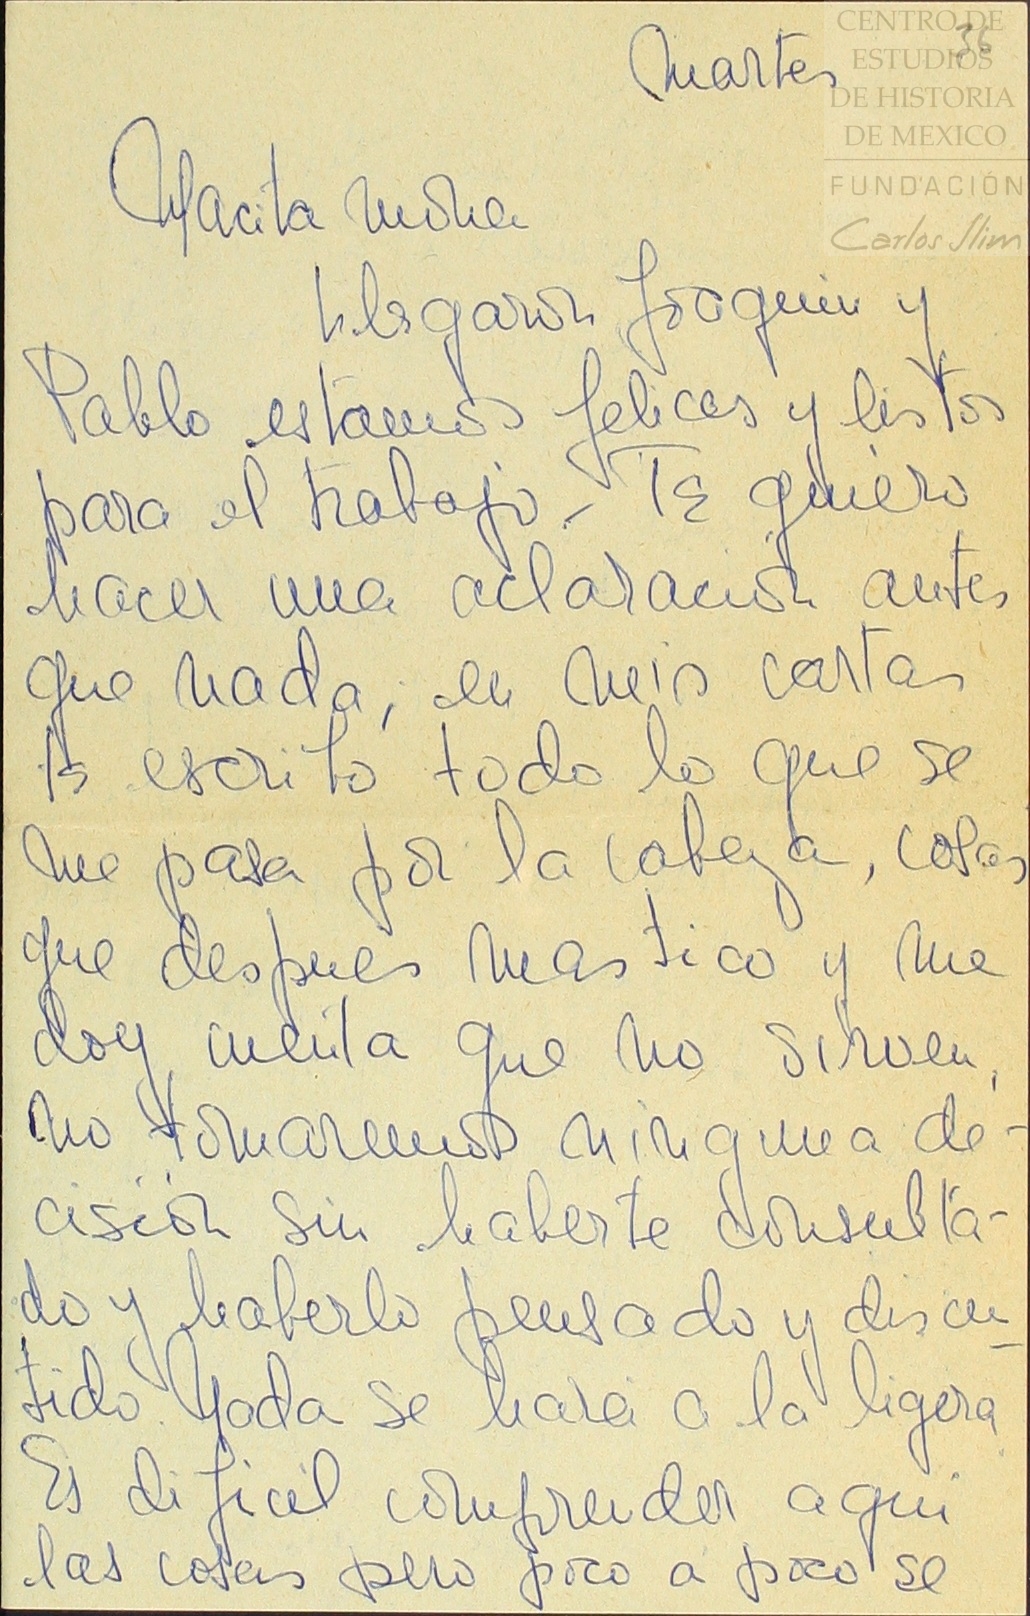 Martes
36
CENTRO DE
ESTUDIOS
DE HISTORIA
DE MEXICO
FUNDACIÓN
Carlos Slim
Macita mona
Llegaron Joaquin y
Pablo estamos felices y listos
para el trabajo - Te quiero
hacer una aclaración antes
que nada, en mis cartas
te escrito todo lo que se
me pasa por la cabeza, cosas
que despues mastico y me
doy cuenta que no sirven,
no tomaremos ninguna de-
cisión sin haberte consulta-
do y haberlo pensado y discu-
tido. Nada se hará a la ligera
Es dificil comprender aqui
las cosas pero poco a poco se